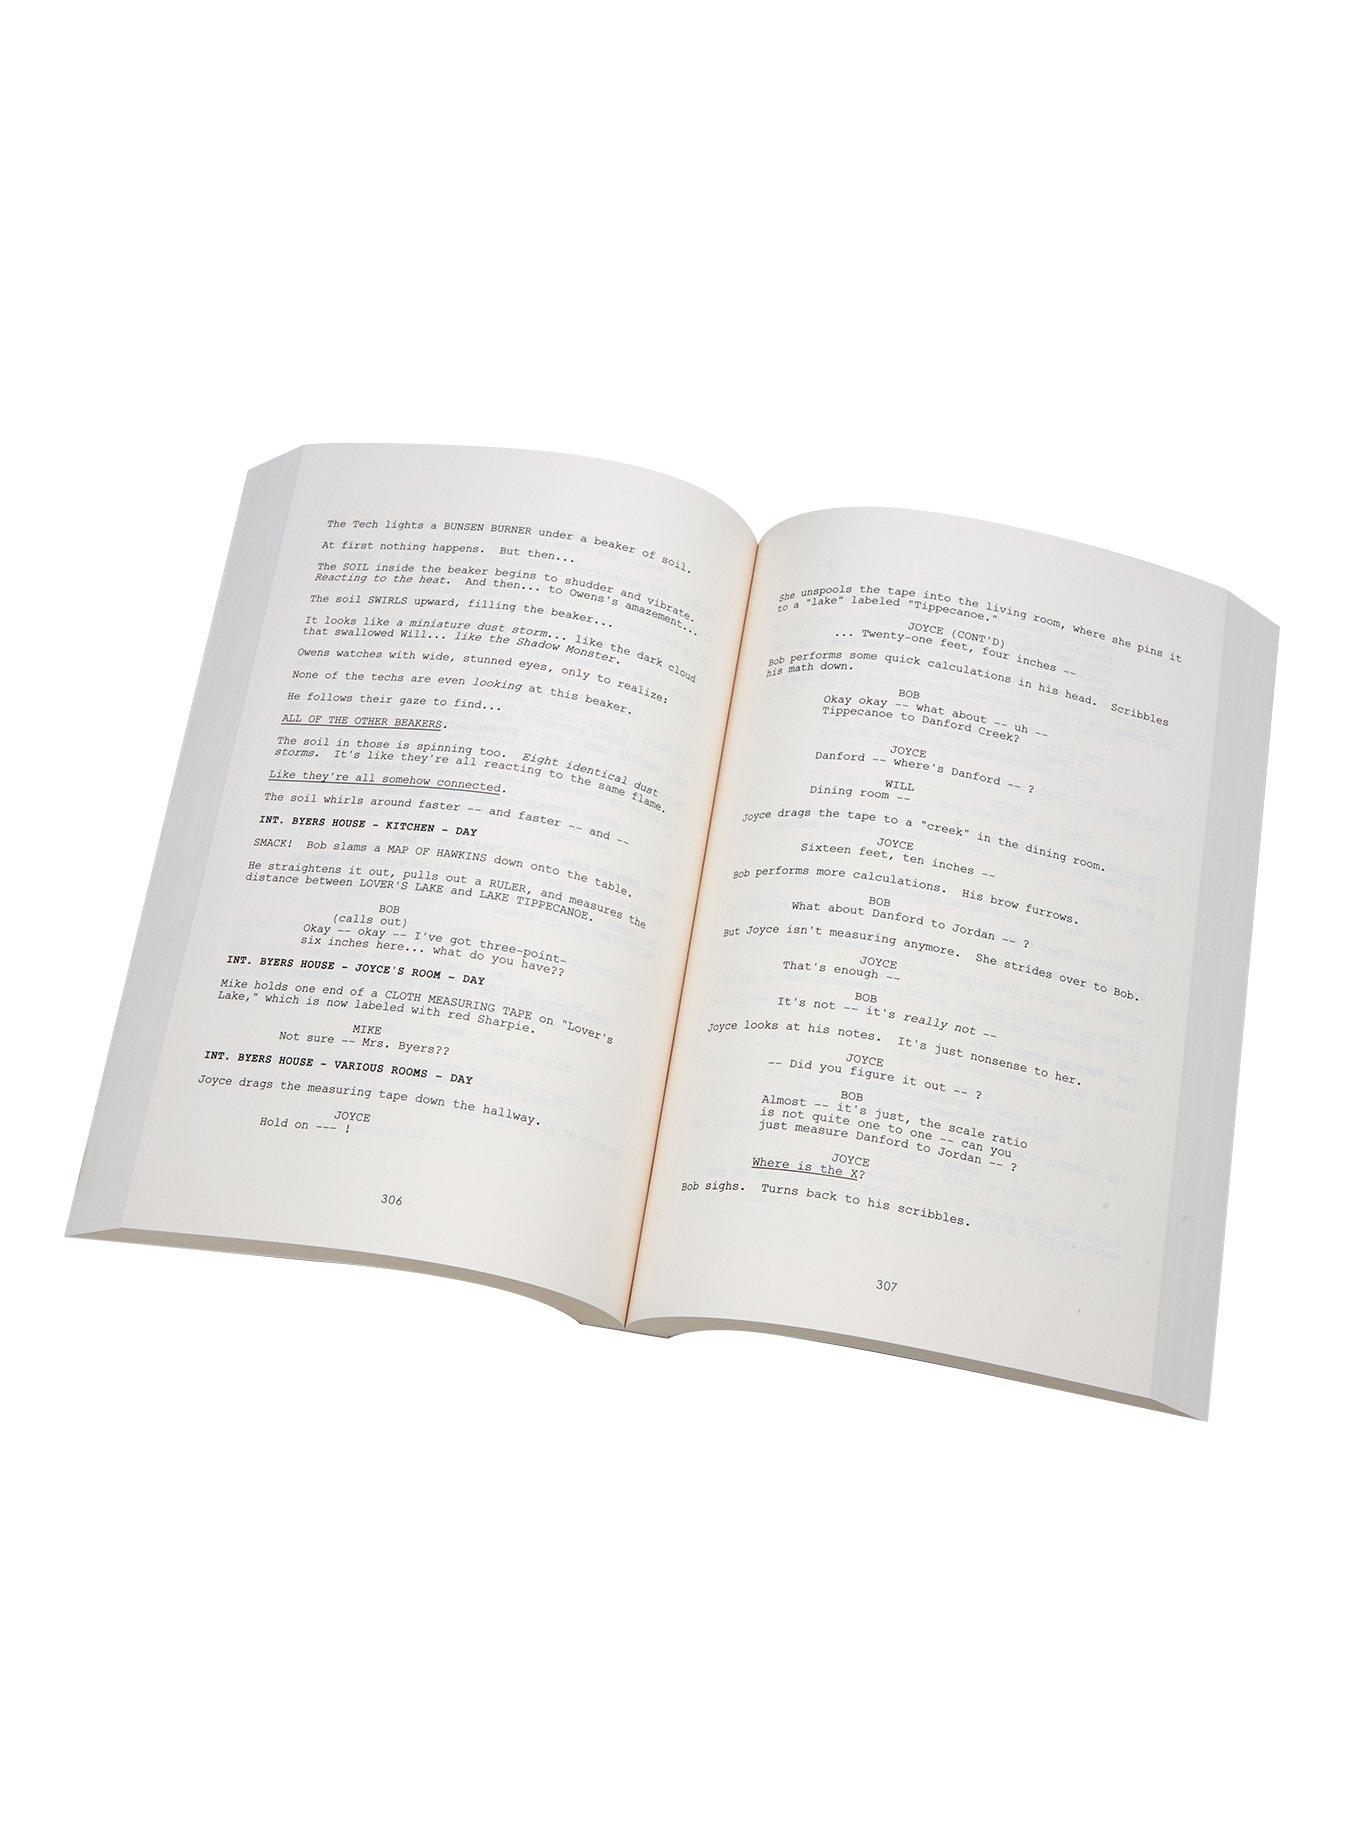 The Tech lights a BUNSEN BURNER under a beaker of soil.
At first nothing happens. But then...
The SOIL inside the beaker begins to shudder and vibrate.
Reacting to the heat. And then... to Owens's amazement...
The soil SWIRLS upward, filling the beaker...
It looks like a miniature dust storm... like the dark cloud
that swallowed Will... like the Shadow Monster.
Owens watches with wide, stunned eyes, only to realize:
None of the techs are even looking at this beaker.
He follows their gaze to find...
ALL OF THE OTHER BEAKERS.
The soil in those is spinning too. Eight identical dust
storms. It's like they're all reacting to the same flame.
Like they're all somehow connected.
The soil whirls around faster -- and faster -- and --
INT. BYERS HOUSE - KITCHEN - DAY
SMACK! Bob slams a MAP OF HAWKINS down onto the table.
He straightens it out, pulls out a RULER, and measures the
distance between LOVER'S LAKE and LAKE TIPPECANOE.
BOB
(calls out)
Okay -- okay -- I've got three-point-
six inches here... what do you have??
INT. BYERS HOUSE - JOYCE'S ROOM - DAY
Mike holds one end of a CLOTH MEASURING TAPE on "Lover's
Lake," which is now labeled with red Sharpie.
MIKE
Not sure -- Mrs. Byers??
INT. BYERS HOUSE - VARIOUS ROOMS - DAY
Joyce drags the measuring tape down the hallway.
JOYCE
Hold on --- !
306
She unspools the tape into the living room, where she pins it
to a "lake" labeled "Tippecanoe."
JOYCE (CONT'D)
... Twenty-one feet, four inches --
Bob performs some quick calculations in his head. Scribbles
his math down.
BOB
Okay okay -- what about -- uh --
Tippecanoe to Danford Creek?
JOYCE
Danford -- where's Danford -- ?
WILL
Dining room --
Joyce drags the tape to a "creek" in the dining room.
JOYCE
Sixteen feet, ten inches --
Bob performs more calculations. His brow furrows.
BOB
What about Danford to Jordan -- ?
But Joyce isn't measuring anymore. She strides over to Bob.
JOYCE
That's enough --
BOB
It's not -- it's really not --
Joyce looks at his notes. It's just nonsense to her.
JOYCE
-- Did you figure it out -- ?
BOB
Almost -- it's just, the scale ratio
is not quite one to one -- can you
just measure Danford to Jordan -- ?
JOYCE
Where is the X?
Bob sighs. Turns back to his scribbles.
307